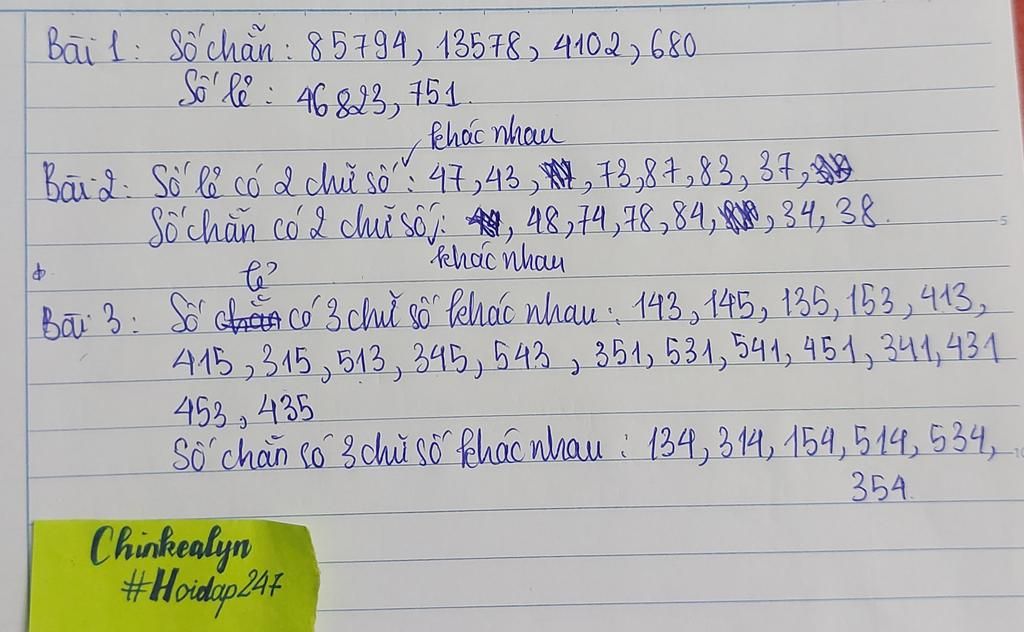 Bài 1: Số chẵn: 85794, 13578, 4102, 680
Số lẻ: 46823, 751.
khác nhau
Bài 2: Số lẻ có 2 chữ số: 47, 43, , 73, 87, 83, 37,
Số chẵn có 2 chữ số: , 48, 74, 78, 84, , 34, 38.
khác nhau
lẻ
Bài 3: Số chẵn có 3 chữ số khác nhau: 143, 145, 135, 153, 413,
415, 315, 513, 345, 543, 351, 531, 541, 451, 341, 431
453, 435
Số chẵn só 3 chữ số khác nhau: 134, 314, 154, 514, 534,
354.
Chinkealyn
#Hoidap247